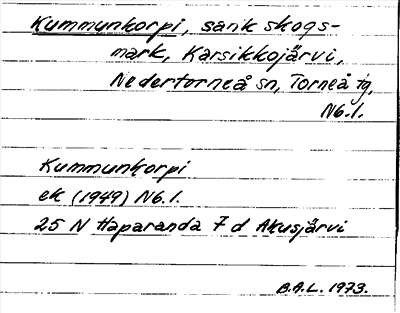 Kummunkorpi, sank skogs-
mark, Karsikkojärvi,
Nedertorneå sn, Torneå tg,
N6.1.
Kummunkorpi
ek (1949) N6.1.
25 N Haparanda 7 d Akusjärvi
B.A.L. 1973.